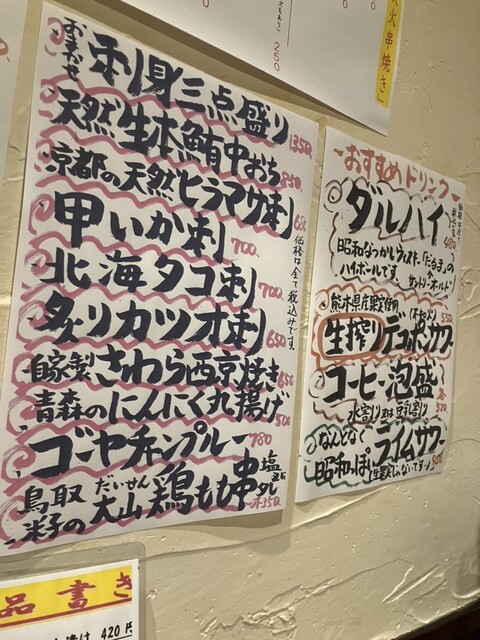 火串焼き」
250
おまかせ 刺身三点盛り 1350
天然生本鮪中おち 850
京都の天然ヒラマサ刺
甲いか刺 700
北海タコ刺 700
炙りカツオ刺 650
自家製さわら西京焼き 650
青森のにんにく丸揚げ
ゴーヤチャンプルー 780
鳥取米子の大山鶏もも串 塩 タレ
だいせん
価格は全て税込みです。
おすすめドリンク
ダルハイ 480
昭和なつかしウィスキー「だるま」の
ハイボールです サントリーオールド
熊本県産果実使用 550
生搾りデコポンサワー
コーヒー泡盛 各570
水割り又は豆乳割り
なんとなく
昭和っぽい ライムサワー
品書き
420円